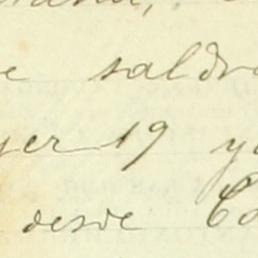 e saldr
yer 19 y
desde Co